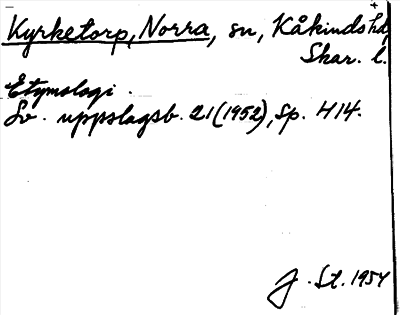 Kyrketorp, Norra, sn, Kåkinds hd,
Skar. l.
Etymologi.
Sv. uppslagsb. 21 (1952), sp. 414.
J. St. 1954